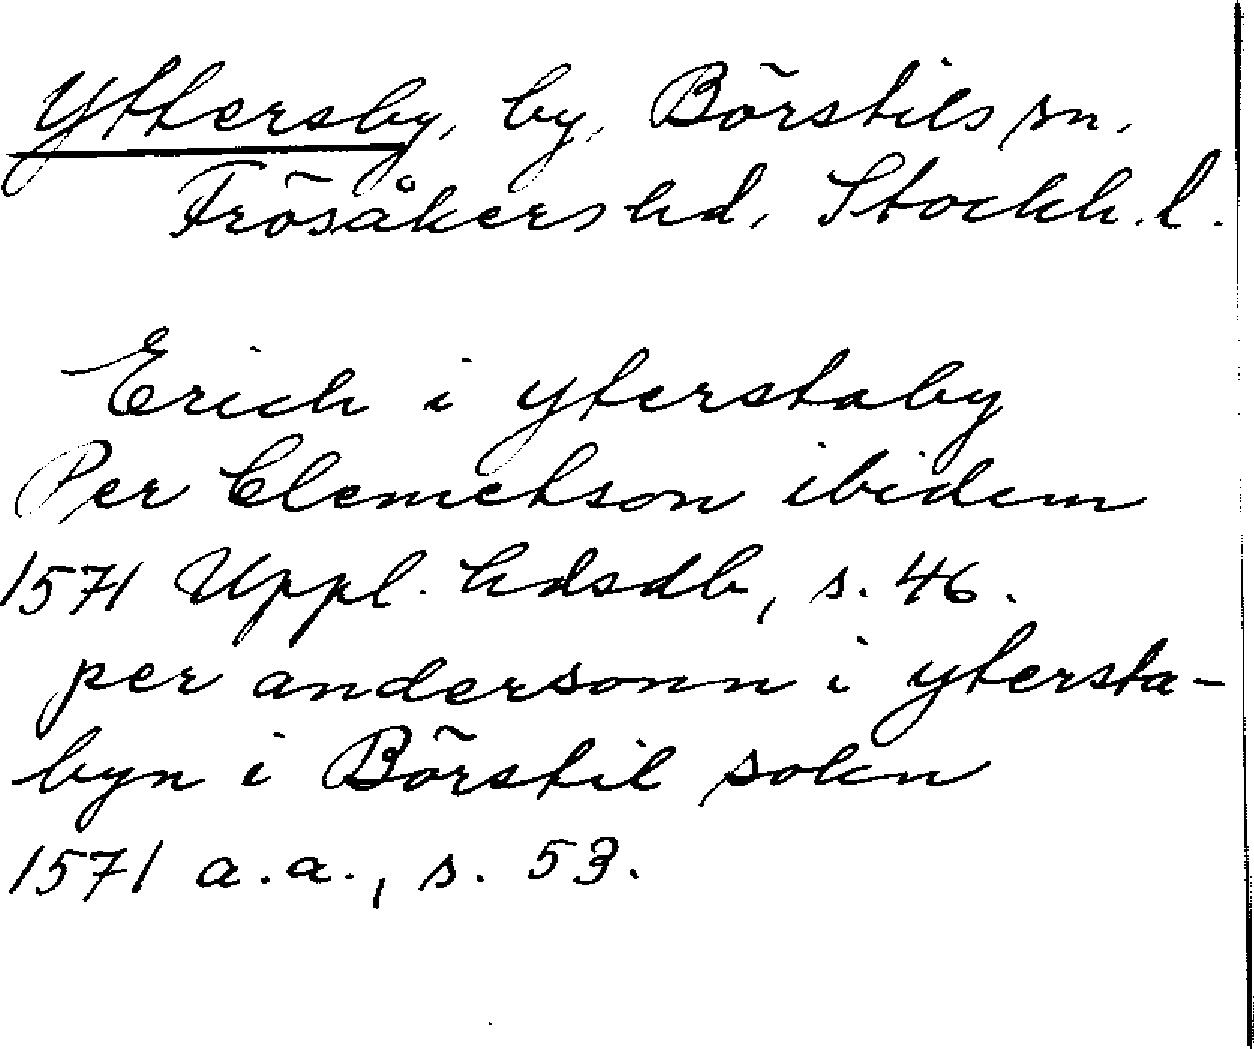 Yttersby, by, Börstils sn,
Frösåkers hd, Stockh. l.
Erich i yterstaby
Per Clemetson ibidem
1571 Uppl. hdsdb, s. 46.
per andersonn i ytersta-
byn i Börstil sokn
1571 a.a., s. 53.